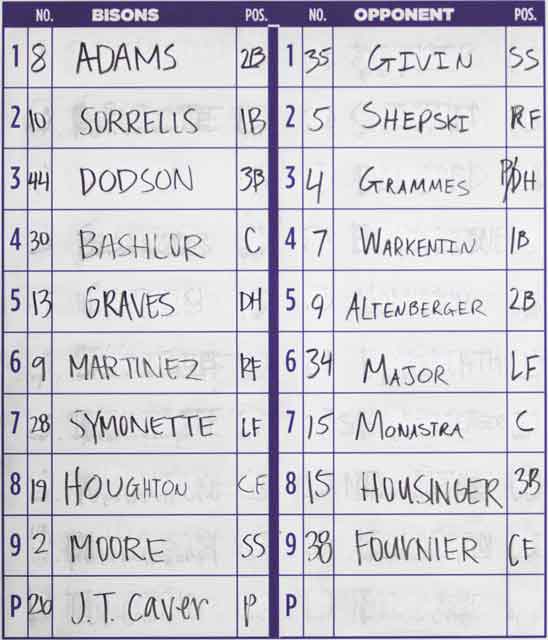 NO. BISONS POS. NO. OPPONENT POS.
1 8 ADAMS 2B 1 35 GIVIN SS
2 10 SORRELLS 1B 2 5 SHEPSKI RF
3 44 DODSON 3B 3 4 GRAMMES P/DH
4 30 BASHLOR C 4 7 WARKENTIN 1B
5 13 GRAVES DH 5 9 ALTENBERGER 2B
6 9 MARTINEZ RF 6 34 MAJOR LF
7 28 SYMONETTE LF 7 15 MONASTRA C
8 19 HOUGHTON CF 8 15 HOUSINGER 3B
9 2 MOORE SS 9 38 FOURNIER CF
P 26 J.T. Caver P P